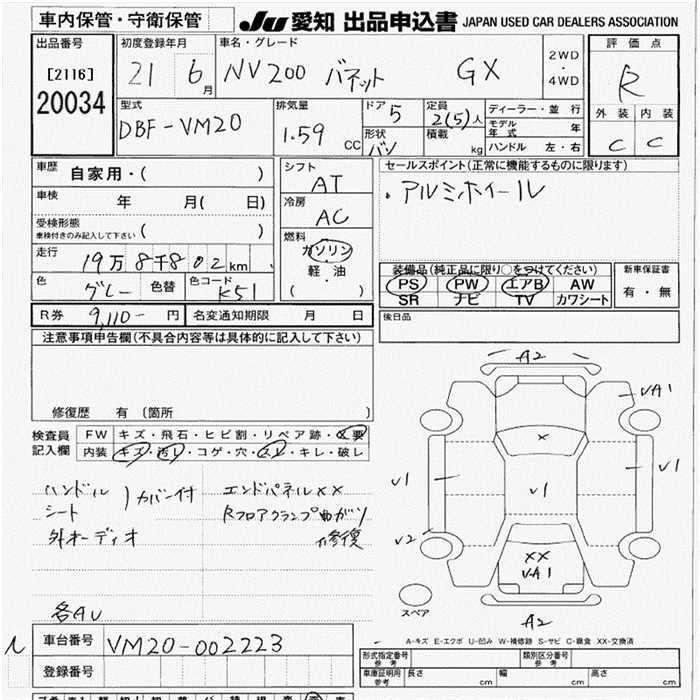 車内保管・守衛保管
JU 愛知 出品申込書 JAPAN USED CAR DEALERS ASSOCIATION
出品番号
[2116]
20034
初度登録年月
21 6月
車名・グレード
NV200 バネット GX
2WD
・
4WD
評価点
R
外装 内装
C C
型式
DBF-VM20
排気量
1.59 CC
ドア 5
形状 バン
定員 2(5)人
積載 kg
ディーラー・並行
モデル年式 年
ハンドル 左・右
車歴 自家用・( )
車検 年 月( 日)
受検形態
車検付きのみ記入して下さい ( )
走行 19万8千802km
色 グレー 色替 色コード K51
シフト
AT
冷房
AC
燃料
ガソリン
軽・油
( )
セールスポイント(正常に機能するものに限ります)
・アルミホイール
装備品(純正品に限り○をつけてください)
PS PW エアB AW
SR ナビ TV カワシート
新車保証書
有・無
R券 9,110- 円 名変通知期限 月 日
後日品
注意事項申告欄(不具合内容等は具体的に記入して下さい)
修復歴 有〔箇所 〕
検査員記入欄
FW キズ・飛石・ヒビ割・リペア跡・X要
内装 キズ・汚レ・コゲ・穴・スレ・キレ・破レ
ハンドル
シート
カバー付
外オーディオ
エンドパネルXX
Rフロアクランプ曲ガリ
修復
各AU
A2
VA1
V1
X
V1
V1
V2
XX
VA1
スペア
A2
A-キズ E-エクボ U-凹み W-補修跡 S-サビ C-腐食 XX-交換済
車台番号 VM20-002223
登録番号
形式指定番号
参考
類別区分番号
参考
車庫証明用
参考
長さ cm 幅 cm 高さ cm